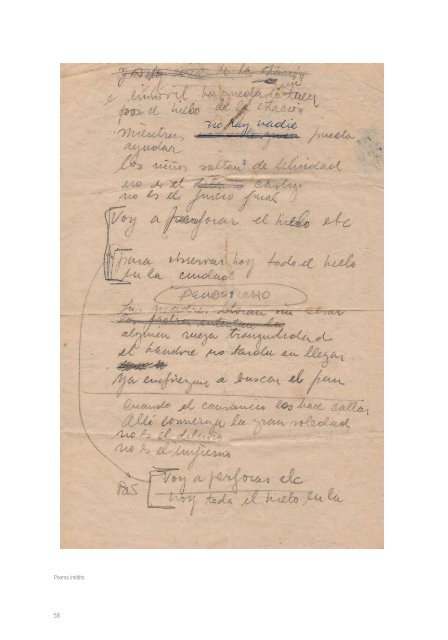 de la estación
e inmóvil ha quedado un tren
por el hielo de la estación
no hay nadie
mientras, pueda
ayudar
los niños saltan de felicidad
no es el castigo
no es el juicio final
Voy a perforar el hielo etc
para observar hoy todo el hielo
en la ciudad
las madres lloran sin cesar
alguien ruega tranquilidad
el hambre no tarda en llegar
ya empiezan a buscar el pan
Cuando el cansancio los hace callar
Allí comienza la gran soledad
no es el delirio
no es el infierno
Voy a perforar etc
hoy todo el hielo en la
Poema inédito
58